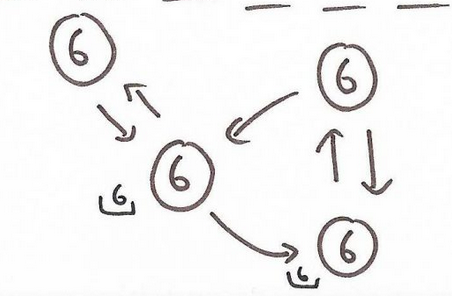 6
6
6
6
6
6